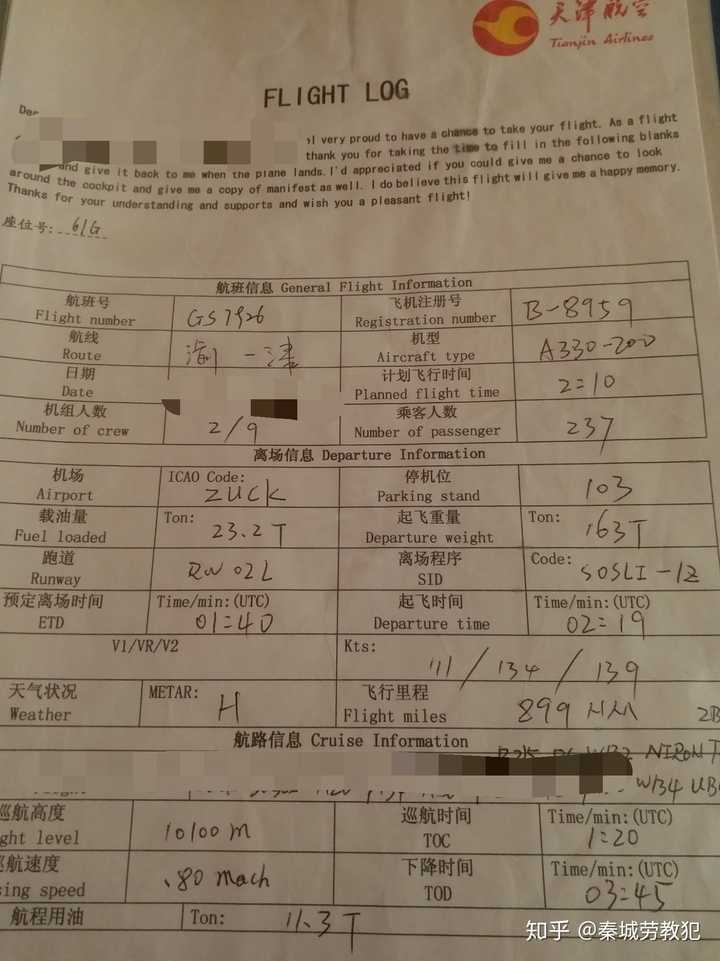 天津航空
Tianjin Airlines
FLIGHT LOG
very proud to have a chance to take your flight. As a flight
thank you for taking the time to fill in the following blanks
and give it back to me when the plane lands. I'd appreciated if you could give me a chance to look
around the cockpit and give me a copy of manifest as well. I do believe this flight will give me a happy memory.
Thanks for your understanding and supports and wish you a pleasant flight!
座位号: 61G
航班信息 General Flight Information
航班号 Flight number GS7926 飞机注册号 Registration number B-8959
航线 Route 渝-津 机型 Aircraft type A330-200
日期 Date 计划飞行时间 Planned flight time 2:10
机组人数 Number of crew 2/9 乘客人数 Number of passenger 237
离场信息 Departure Information
机场 Airport ICAO Code: ZUCK 停机位 Parking stand 103
载油量 Fuel loaded Ton: 23.2T 起飞重量 Departure weight Ton: 163T
跑道 Runway RW 02L 离场程序 SID Code: SOSLI-1Z
预定离场时间 ETD Time/min:(UTC) 01:40 起飞时间 Departure time Time/min:(UTC) 02:19
V1/VR/V2 Kts: 111/134/139
天气状况 Weather METAR: H 飞行里程 Flight miles 899 NM
航路信息 Cruise Information
W134
巡航高度 ght level 10100 m 巡航时间 TOC Time/min:(UTC) 1:20
巡航速度 sing speed .80 mach 下降时间 TOD Time/min:(UTC) 03:45
航程用油 Ton: 11.3T
知乎 @秦城劳教犯